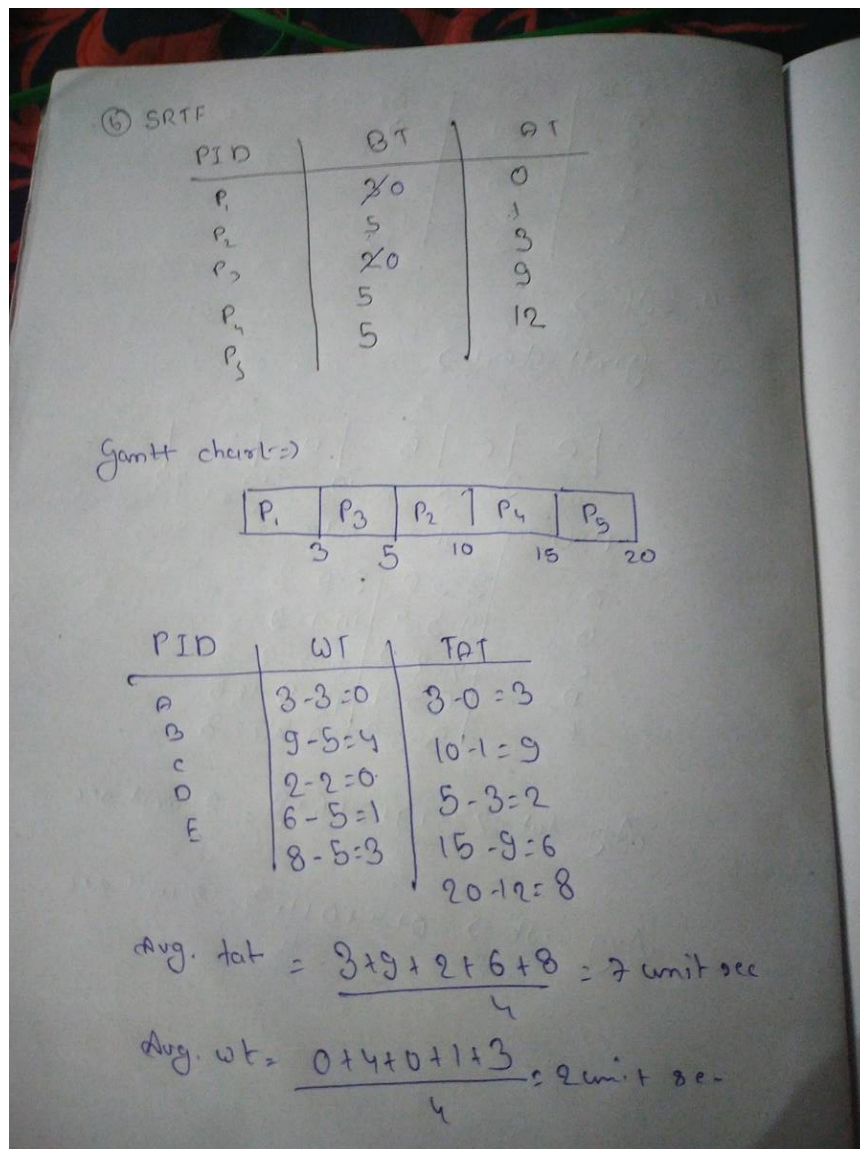 6 SRTF
PID BT AT
P1 30 0
P2 5 1
P3 20 3
P4 5 9
P5 5 12
Gantt chart =>
P1 P3 P2 P4 P5
3 5 10 15 20
PID WT TAT
A 3-3=0 3-0=3
B 9-5=4 10-1=9
C 2-2=0 5-3=2
D 6-5=1 15-9=6
E 8-5=3 20-12=8
Avg. tat = 3+9+2+6+8 = 7 unit sec
4
Avg. wt = 0+4+0+1+3 = 2 unit se-
4